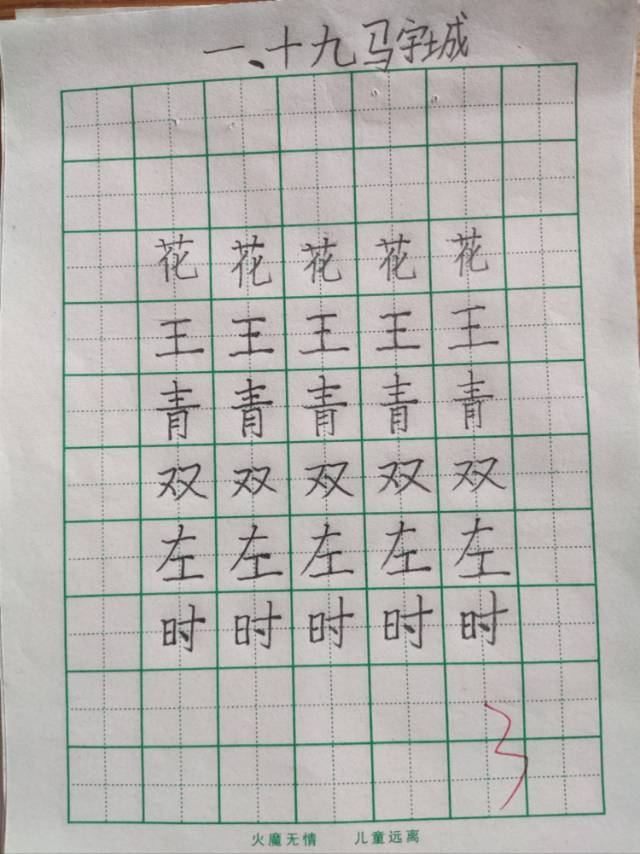 一、十九马宇城
花花花花花
王王王王王
青青青青青
双双双双双
左左左左左
时时时时时
火魔无情 儿童远离